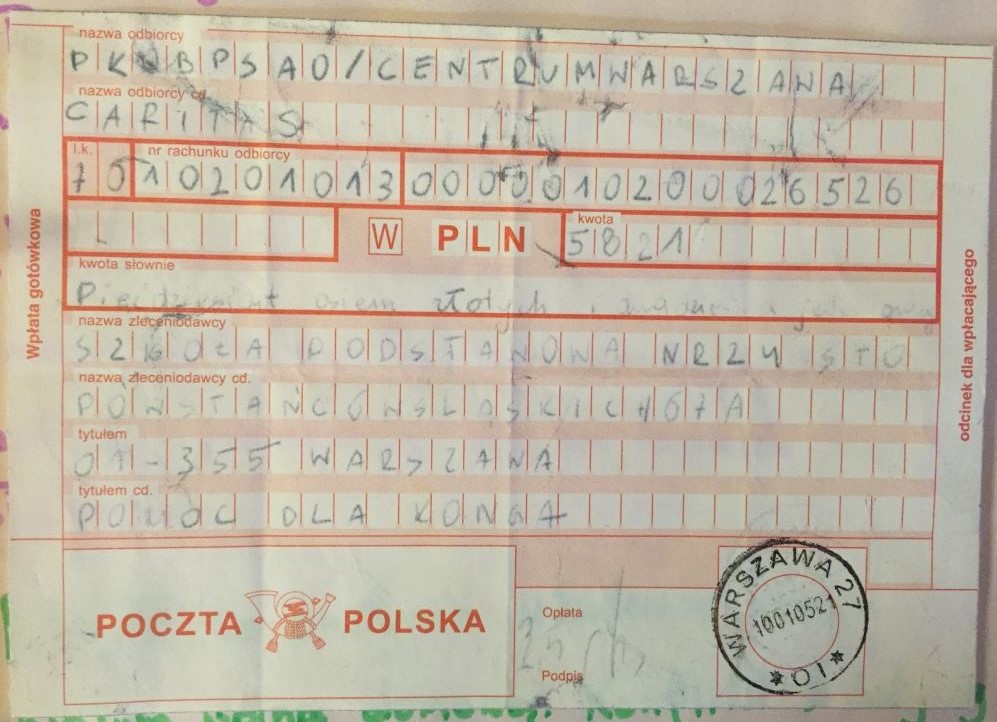 nazwa odbiorcy
PKOBPSAO/CENTRUMWARSZAWA
nazwa odbiorcy cd.
CARITAS
l.k. nr rachunku odbiorcy
70102010130000010200026526
W PLN
kwota
5821
kwota słownie
Pięćdziesiąt osiem złotych i
nazwa zleceniodawcy
SZKOŁA PODSTAWOWA NRZ4 STO
nazwa zleceniodawcy cd.
POWSTAŃCÓWŚLĄSKICH67A
tytułem
01-355 WARSZAWA
tytułem cd.
POMOC DLA KONGA
Wpłata gotówkowa
odcinek dla wpłacającego
POCZTA POLSKA
Opłata
Podpis
WARSZAWA 27
10010521